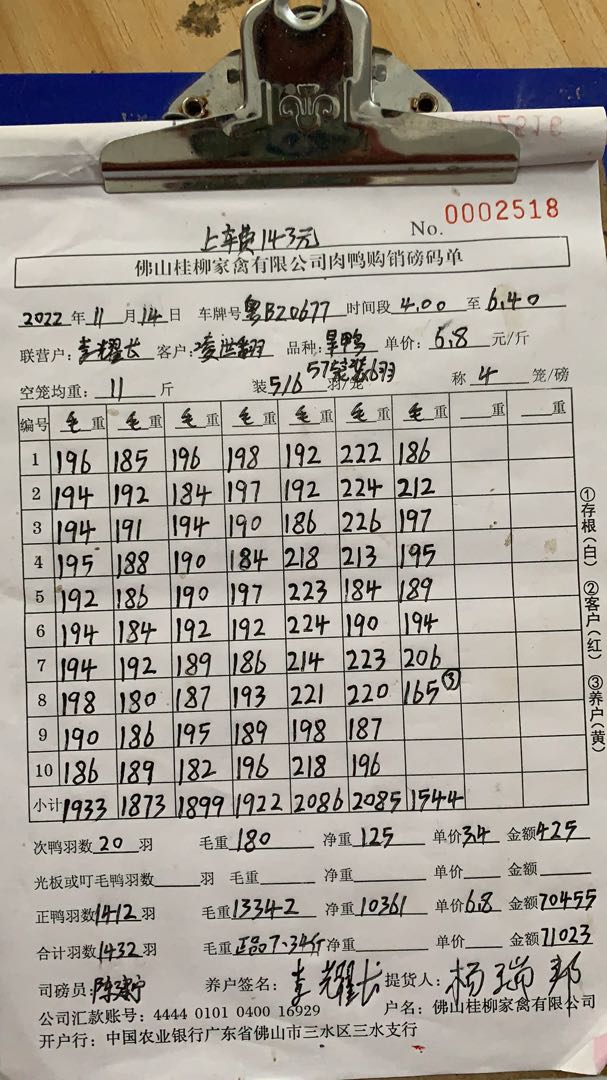 No. 0002518
上车费143元
佛山桂柳家禽有限公司肉鸭购销磅码单
2022年11月14日 车牌号粤B20677 时间段4.00至6.40
联营户:李耀长 客户:凌洪翻 品种:旱鸭 单价:6.8元/斤
空笼均重:11斤 装5/6 57 羽/笼 称4笼/磅
编号 毛重 毛重 毛重 毛重 毛重 毛重 毛重 重 重
1 196 185 196 198 192 222 186
2 194 192 184 197 192 224 212
3 194 191 194 190 186 226 197
4 195 188 190 184 218 213 195
5 192 186 190 197 223 184 189
6 194 184 192 192 224 190 194
7 194 192 189 186 214 223 206
8 198 180 187 193 221 220 165③
9 190 186 195 189 198 187
10 186 189 182 196 218 196
小计 1933 1873 1899 1922 2086 2085 1544
次鸭羽数20羽 毛重180 净重125 单价3.4 金额425
光板或叮毛鸭羽数 羽 毛重 净重 单价 金额
正鸭羽数1412羽 毛重13342 净重10361 单价6.8 金额70455
合计羽数1432羽 毛重正品7.34斤 净重 单价 金额71023
司磅员: 养户签名:李耀长 提货人:杨瑞邦
公司汇款账号: 4444 0101 0400 16929 户名: 佛山桂柳家禽有限公司
开户行: 中国农业银行广东省佛山市三水区三水支行
①存根(白) ②客户(红) ③养户(黄)